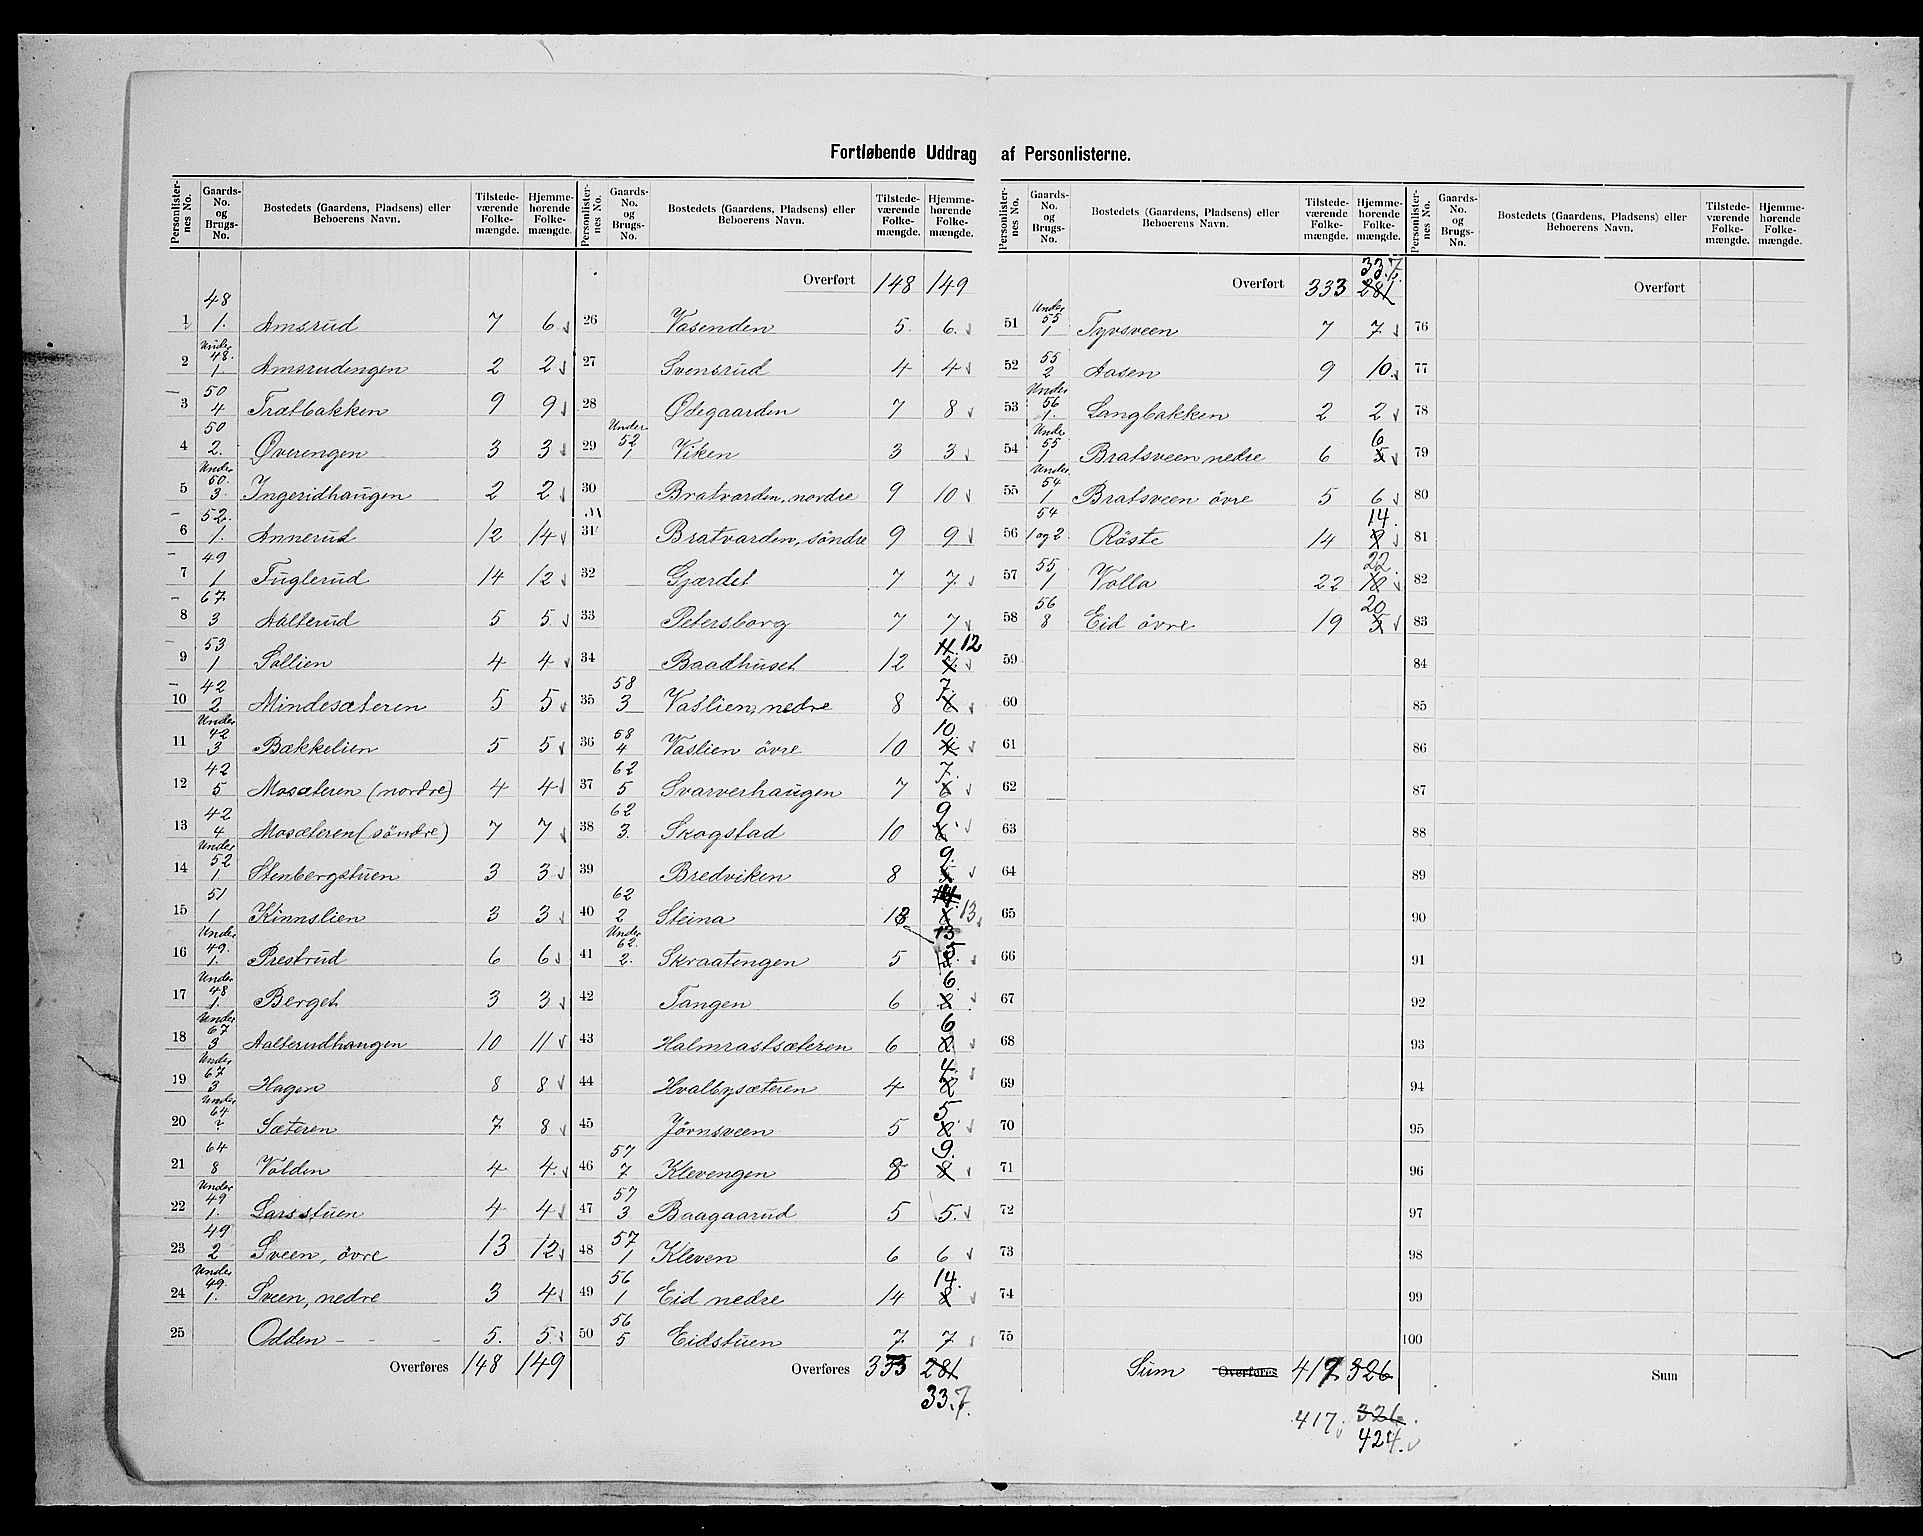 Fortløbende Uddrag af Personlisterne.
Personlister-nes No. | Gaards-No. og Brugs-No. | Bostedets (Gaardens, Pladsens) eller Beboerens Navn. | Tilstede-værende Folke-mængde. | Hjemme-hørende Folke-mængde.
1 | 48 1. | Amsrud | 7 | 6
2 | Under 48. 1 | Amsrudengen | 2 | 2
3 | 50 4 | Trætbakken | 9 | 9
4 | 50 2. | Øverengen | 3 | 3
5 | Under 50. 3. | Ingeridhaugen | 2 | 2
6 | 52. 1. | Annerud | 12 | 14
7 | 49 1 | Fuglerud | 14 | 12
8 | 67. 3 | Aalterud | 5 | 5
9 | 53 1 | Sollien | 4 | 4
10 | 42 2 | Mindesæteren | 5 | 5
11 | Under 42 3 | Bækkelien | 5 | 5
12 | 42 5 | Mosæteren (nordre) | 4 | 4
13 | 42 4 | Mosæteren (söndre) | 7 | 7
14 | Under 52 1 | Stenbergstuen | 3 | 3
15 | 51 1 | Kinnslien | 3 | 3
16 | Under 49. 1. | Prestrud | 6 | 6
17 | Under 48 1. | Berget | 3 | 3
18 | Under 67 3 | Aalterudhaugen | 10 | 11
19 | Under 67 3 | Hagen | 8 | 8
20 | Under 64 ? | Sæteren | 7 | 8
21 | 64 8 | Volden | 4 | 4.
22 | Under 49 1. | Larsstuen | 4 | 4
23 | 49 2 | Sveen, övre | 13 | 12
24 | Under 49. 1. | Sveen, nedre | 3 | 4
25 | Odden - - - | 5. | 5.
Overføres 148 149
Personlister-nes No. | Gaards-No. og Brugs-No. | Bostedets (Gaardens, Pladsens) eller Beboerens Navn. | Tilstede-værende Folke-mængde. | Hjemme-hørende Folke-mængde.
Overført 148 149
26 | Vasenden | 5. | 6.
27 | Svensrud | 4 | 4
28 | Ødegaarden | 7 | 8
29 | Under 52 1 | Viken | 3 | 3
30 | Bratvarden, nordre | 9 | 10
31 | Bratvarden, söndre | 9 | 9
32 | Gjærdet | 7 | 7.
33 | Petersborg | 7 | 7
34 | Baadhuset | 12 | 11. 12
35 | 58 3 | Vaslien, nedre | 8 | 7.
36 | 58 4 | Vaslien övre | 10 | 10.
37 | 62 5 | Svarverhaugen | 7 | 7.
38 | 62 3. | Skogstad | 10 | 9
39 | Bredviken | 8 | 9.
40 | 62 2 | Steina | 13 | 14 13
41 | Under 62. 2. | Skraatengen | 5 | 5.
42 | Tangen | 6 | 6.
43 | Halmrastsæteren | 6 | 6 8
44 | Hvalbysæteren | 4 | 4. 8
45 | Jörnsveen | 5 | 5 8
46 | 57 7 | Klevengen | 8 | 9. 8
47 | 57 3 | Baagaarud | 5 | 5.
48 | 57 1 | Kleven | 6 | 6
49 | 56 1 | Eid nedre | 14 | 14. 8
50 | 56 5 | Eidstuen | 7. | 7
Overføres 333 281
337.
Personlister-nes No. | Gaards-No. og Brugs-No. | Bostedets (Gaardens, Pladsens) eller Beboerens Navn. | Tilstede-værende Folke-mængde. | Hjemme-hørende Folke-mængde.
337.
Overført 333 281
51 | Under 55 1 | Tyvsveen | 7 | 7
52 | 55 2 | Aasen | 9 | 10
53 | Under 56 1. | Langbakken | 2 | 2
54 | Under 55 1 | Bratsveen nedre | 6 | 6 5
55 | Under 54 1 | Bratsveen övre | 5 | 6
56 | 54 1 og 2. | Röste | 14 | 14.
57 | 55 1 | Volla | 22 | 22.
58 | 56 8 | Eid övre | 19 | 20 5
59
60
61
62
63
64
65
66
67
68
69
70
71
72
73
74
75
Sum Overføres 417 326
417. 326.
424.
Personlister-nes No. | Gaards-No. og Brugs-No. | Bostedets (Gaardens, Pladsens) eller Beboerens Navn. | Tilstede-værende Folke-mængde. | Hjemme-hørende Folke-mængde.
Overført
76
77
78
79
80
81
82
83
84
85
86
87
88
89
90
91
92
93
94
95
96
97
98
99
100
Sum